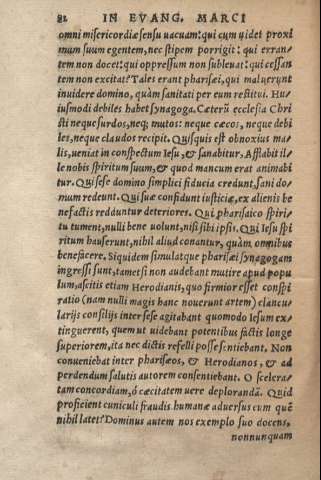 82 IN EVANG. MARCI
omni misericordiæ sensu uacuam: qui cum uidet proxi
mum suum egentem, nec stipem porrigit: qui erran/
tem non docet: qui oppressum non subleuat: qui cessan
tem non excitat? Tales erant pharisæi, qui maluerunt
inuidere domino, quàm sanitati per eum restitui. Hu/
iusmodi debiles habet synagoga. Cæterũ ecclesia Chri
sti neque surdos, neq; mutos: neque cæcos, neque debi
les, neque claudos recipit. Quisquis est obnoxius ma/
lis, ueniat in conspectum Iesu, & sanabitur. Afflabit il/
le nobis spiritum suum, & quod mancum erat animabi
tur. Qui sese domino simplici fiducia credunt, sani do/
mum redeunt. Qui suæ confidunt iusticiæ, ex alienis be
nefactis redduntur deteriores. Qui pharisaico spiri/
tu tument, nulli bene uolunt, nisi sibi ipsis. Qui Iesu spi
ritum hauserunt, nihil aliud conantur, quàm omnibus
benefacere. Siquidem simulatque pharisæi synagogam
ingressi sunt, tametsi non audebant mutire apud popu
lum, ascitis etiam Herodianis, quo firmior esset conspi
ratio (nam nulli magis hanc nouerunt artem) clancu/
larijs consilijs inter sese agitabant quomodo Iesum ex/
tinguerent, quem ut uidebant potentibus factis longe
superiorem, ita nec dictis refelli posse sentiebant. Non
conueniebat inter pharisæos, & Herodianos, & ad
perdendum salutis autorem consentiebant. O scelera/
tam concordiam, ó cæcitatem uere deplorandã. Quid
proficient cuniculi fraudis humanæ aduersus eum quẽ
nihil latet? Dominus autem nos exemplo suo docens,
nonnunquam